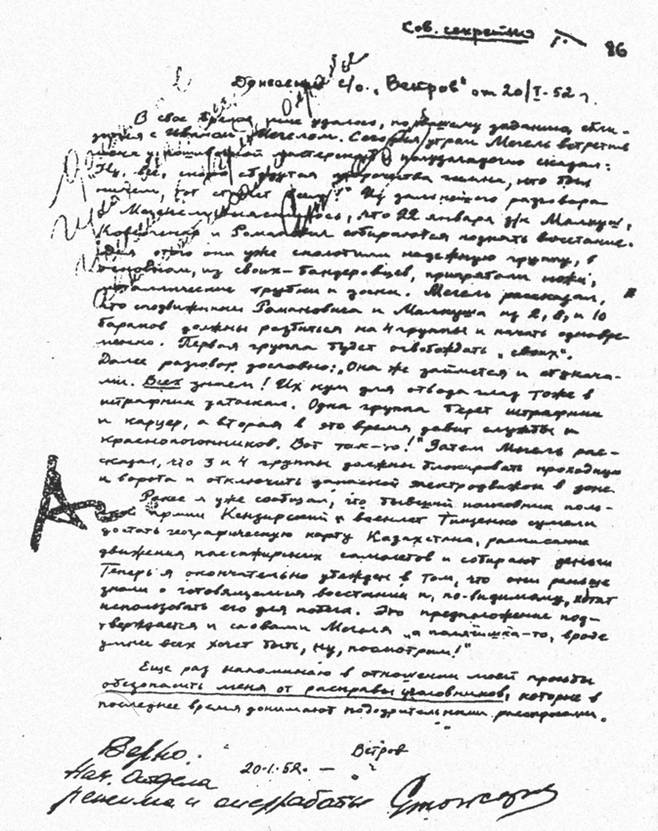 Сов. секретно
86
Донесение с/о „Ветров“ от 20/I-52 г.
В свое время мне удалось, по вашему заданию, сбли-
зиться с Иваном Мегелом. Сегодня утром Мегель встретив
меня у полуназадачно сказал:
Ну, все, скоро сбудутся пророчества гимна, кто был
ничем, тот станет всем!“ Из дальнейшего разговора
с Мегелем выяснилось, что 22 января з/к Малкуш,
Коверченко и Романович собираются поднять восстание.
Для этого они уже сколотили надежную группу, в
основном, из своих-бандеровцев, припрятали ножи,
металлические трубки и доски. Мегель рассказал,
что сподвижники Романовича и Малкуша из 2, 8, и 10
бараков должны разбиться на 4 группы и начать одновре-
менно. Первая группа будет освобождать „своих“.
Далее разговор дословно: „Она же займется и стукача-
ми. Всех знаем! Их кум для отвода глаз тоже в
штрафник затолкал. Одна группа берет штрафник
и карцер, а вторая в это время давит службы и
краснопогонников. Вот так-то!“ Затем Мегель рас-
сказал, что 3 и 4 группы должны блокировать проходную
и ворота и отключить запасной электродвижок в зоне
Ранее я уже сообщал, что бывший полковник поль-
ской армии Кензирский и военлет Тищенко сумели
достать географическую карту Казахстана, расписание
движения пассажирских самолетов и собирают деньги
Теперь я окончательно убежден в том, что они раньше
знали о готовящемся восстании и, по-видимому, хотят
использовать его для побега. Это предположение под-
тверждается и словами Мегеля „а полячишка-то, вроде
умнее всех хочет быть, ну, посмотрим!“
Еще раз напоминаю в отношении моей просьбы
обезопасить меня от расправы уголовников, которые в
последнее время донимают подозрительными расспросами.
Ветров
20.1.52.
Верно:
Нач. отдела
режима и оперработы